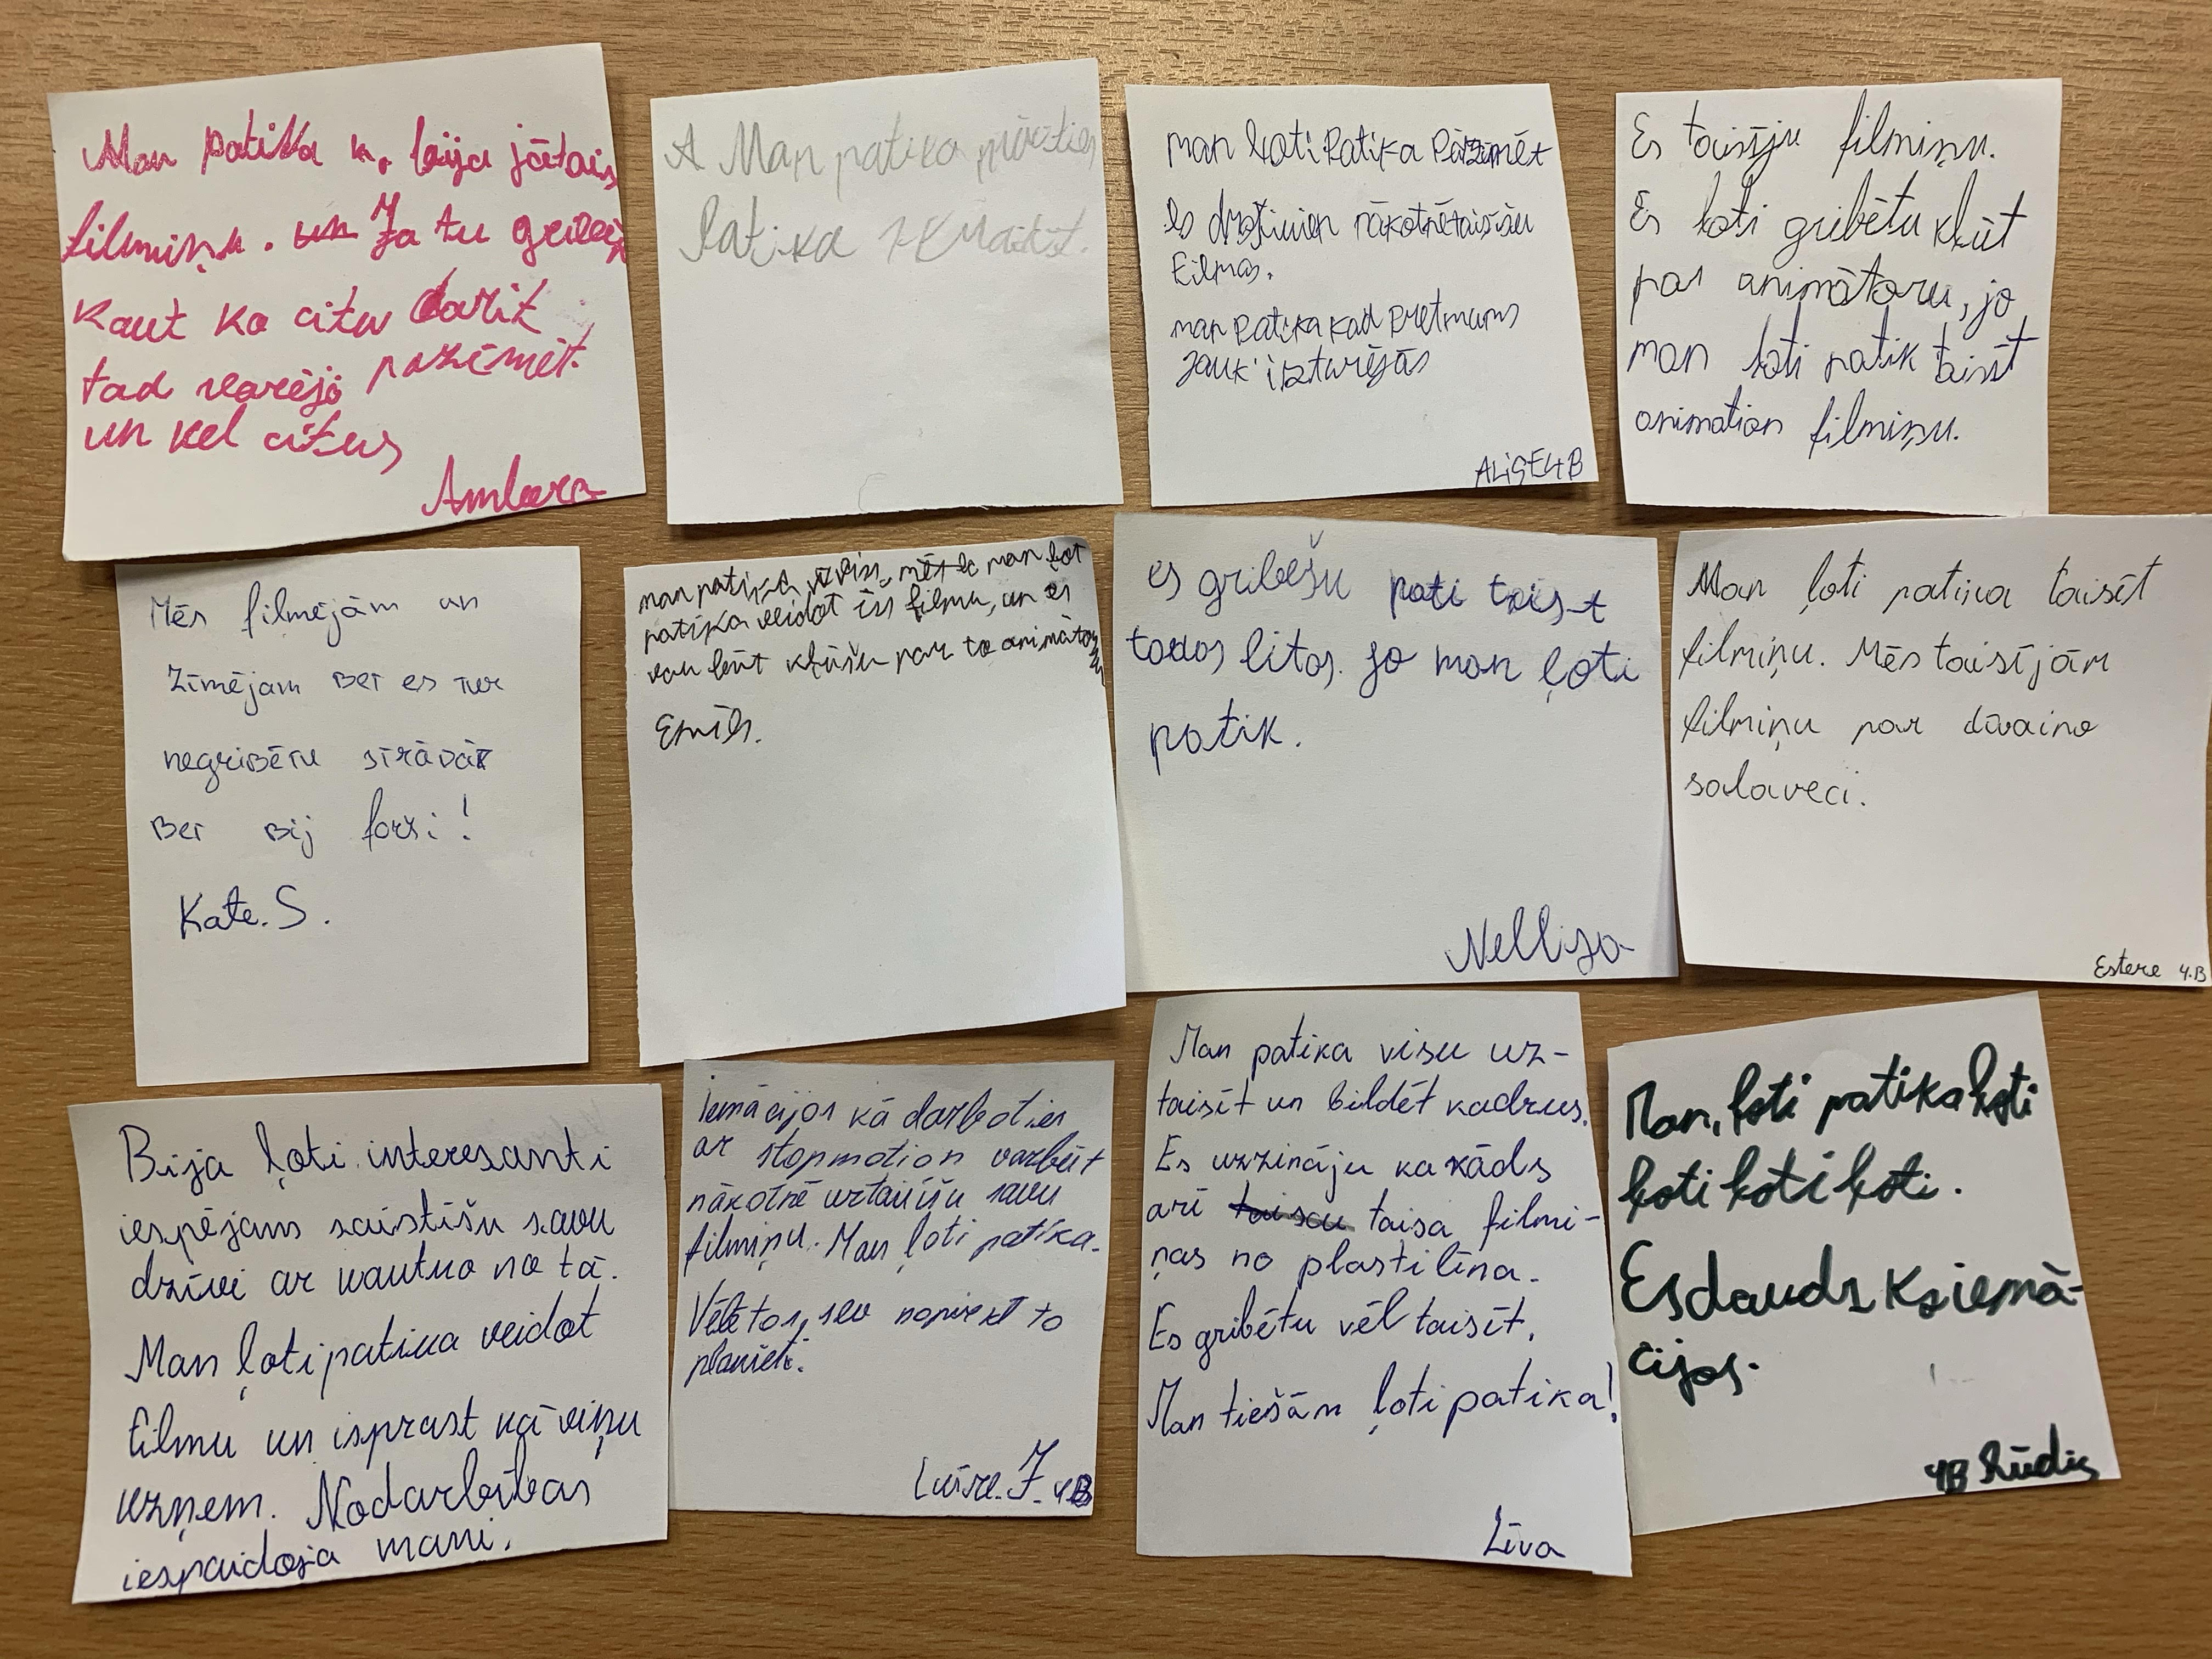 Man patika k. bija jātais
filmiņu. un Ja tu gribēj
kaut ko citu darit
tad varēja pazīmēt.
un vēl citus
Ambera
A Man patika
Patika
man ļoti Patika Pazīmēt
es drošvien nākotnē taisīšu
Filmas.
man Patika kad Pretmums
jauk izturējās
ALiSE 4B
Es taisīju filmiņu.
Es ļoti gribētu kļūt
par animātoru, jo
man ļoti patik taisīt
animation filmiņu.
Mēs filmējām un
zīmējam bet es tur
negribētu strādāt
Bet bij forši!
Kate. S.
man patika viss man ļot
patika veidot īss filmu, un es
var būt kļūšu par to animātoru
Emīls.
es gribešu pati taisīt
todos litos. jo man ļoti
patik.
Nellija
Man ļoti patika taisīt
filmiņu. Mēs taisījām
filmiņu par dīvaino
salaveci.
Estere 4.B
Bija ļoti interesanti
iespējams saistīšu savu
dzīvi ar kautko no tā.
Man ļoti patika veidot
filmu un isprast kā viņu
uzņem. Nodarbības
iespaidoja mani.
Iemācijos kā darboties
ar stopmotion varbūt
nākotnē uztaisīšu savu
filmiņu. Man ļoti patika.
Vēlētos, sev nopirkt to
planšeti.
Luīze. J. 4B
Man patika visu uz-
taisīt un bildēt kadrus.
Es uzzināju ka kāds
arī taisa filmi-
ņas no plastilīna.
Es gribētu vēl taisīt.
Man tiešām ļoti patika!
Līva
Man, ļoti patika ļoti
ļoti ļoti ļoti.
Es daudz ko iemā-
cijos.
4B Rūdis